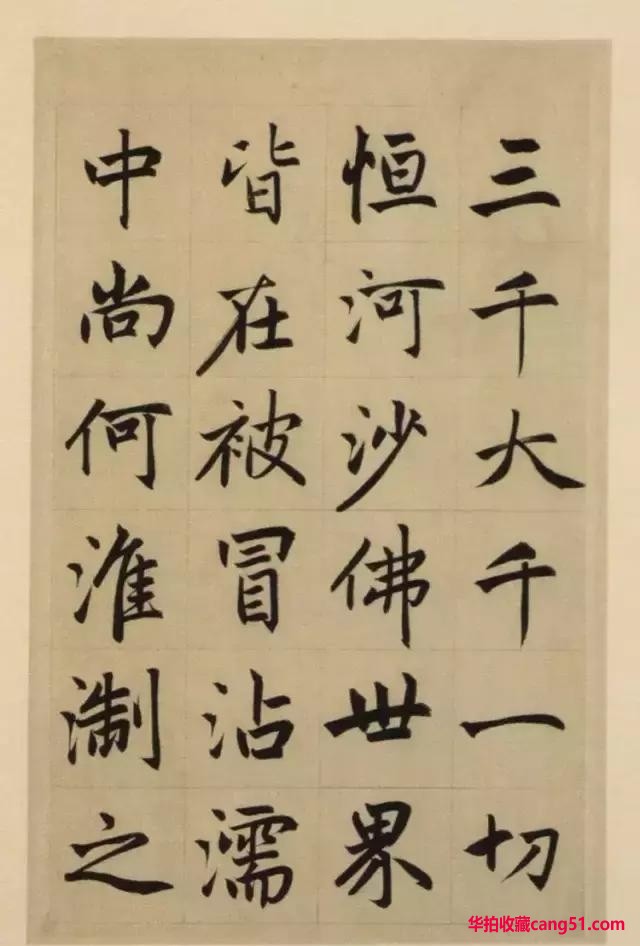 三千大千一切
恒河沙佛世界
皆在被冒沾濡
中尚何淮淛之
华拍收藏cang51.com